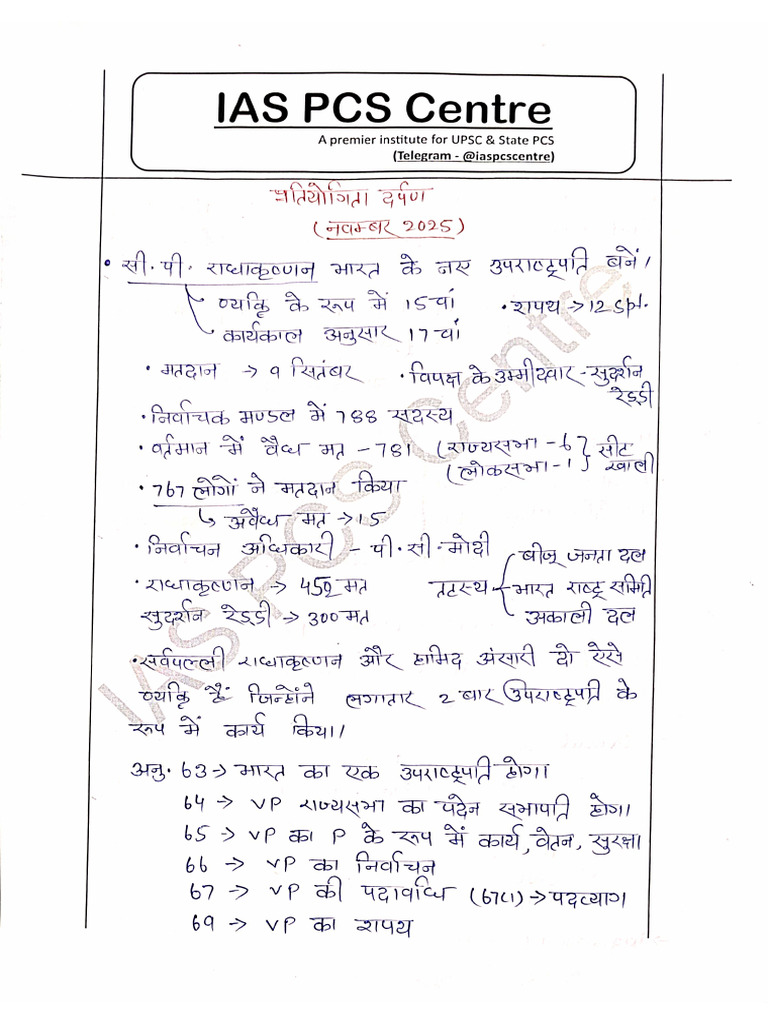 IAS PCS Centre
A premier institute for UPSC & State PCS
(Telegram - @iaspcscentre)
प्रतियोगिता दर्पण
(नवम्बर 2025)
• सी. पी. राधाकृष्णन भारत के नए उपराष्ट्रपति बनें।
व्यक्ति के रूप में 15वां • शपथ → 12 spt.
कार्यकाल अनुसार 17वां
• मतदान → 9 सितंबर • विपक्ष के उम्मीदवार - सुदर्शन रेड्डी
• निर्वाचक मण्डल में 788 सदस्य
• वर्तमान में वैध मत - 781 (राज्यसभा - 6 सीट
(लोकसभा - 1 खाली
• 767 लोगों ने मतदान किया
↳ अवैध मत → 15
• निर्वाचन अधिकारी - पी. सी. मोदी
बीजू जनता दल
• राधाकृष्णन → 452 मत तटस्थ भारत राष्ट्र समिति
सुदर्शन रेड्डी → 300 मत अकाली दल
• सर्वपल्ली राधाकृष्णन और हामिद अंसारी दो ऐसे
व्यक्ति हैं जिन्होंने लगातार 2 बार उपराष्ट्रपति के
रूप में कार्य किया।
अनु. 63 → भारत का एक उपराष्ट्रपति होगा।
64 → VP राज्यसभा का पदेन सभापति होगा।
65 → VP का P के रूप में कार्य, वेतन, सुरक्षा।
66 → VP का निर्वाचन
67 → VP की पदावधि (67(1) → पदत्याग
69 → VP का शपथ
IAS PCS Centre